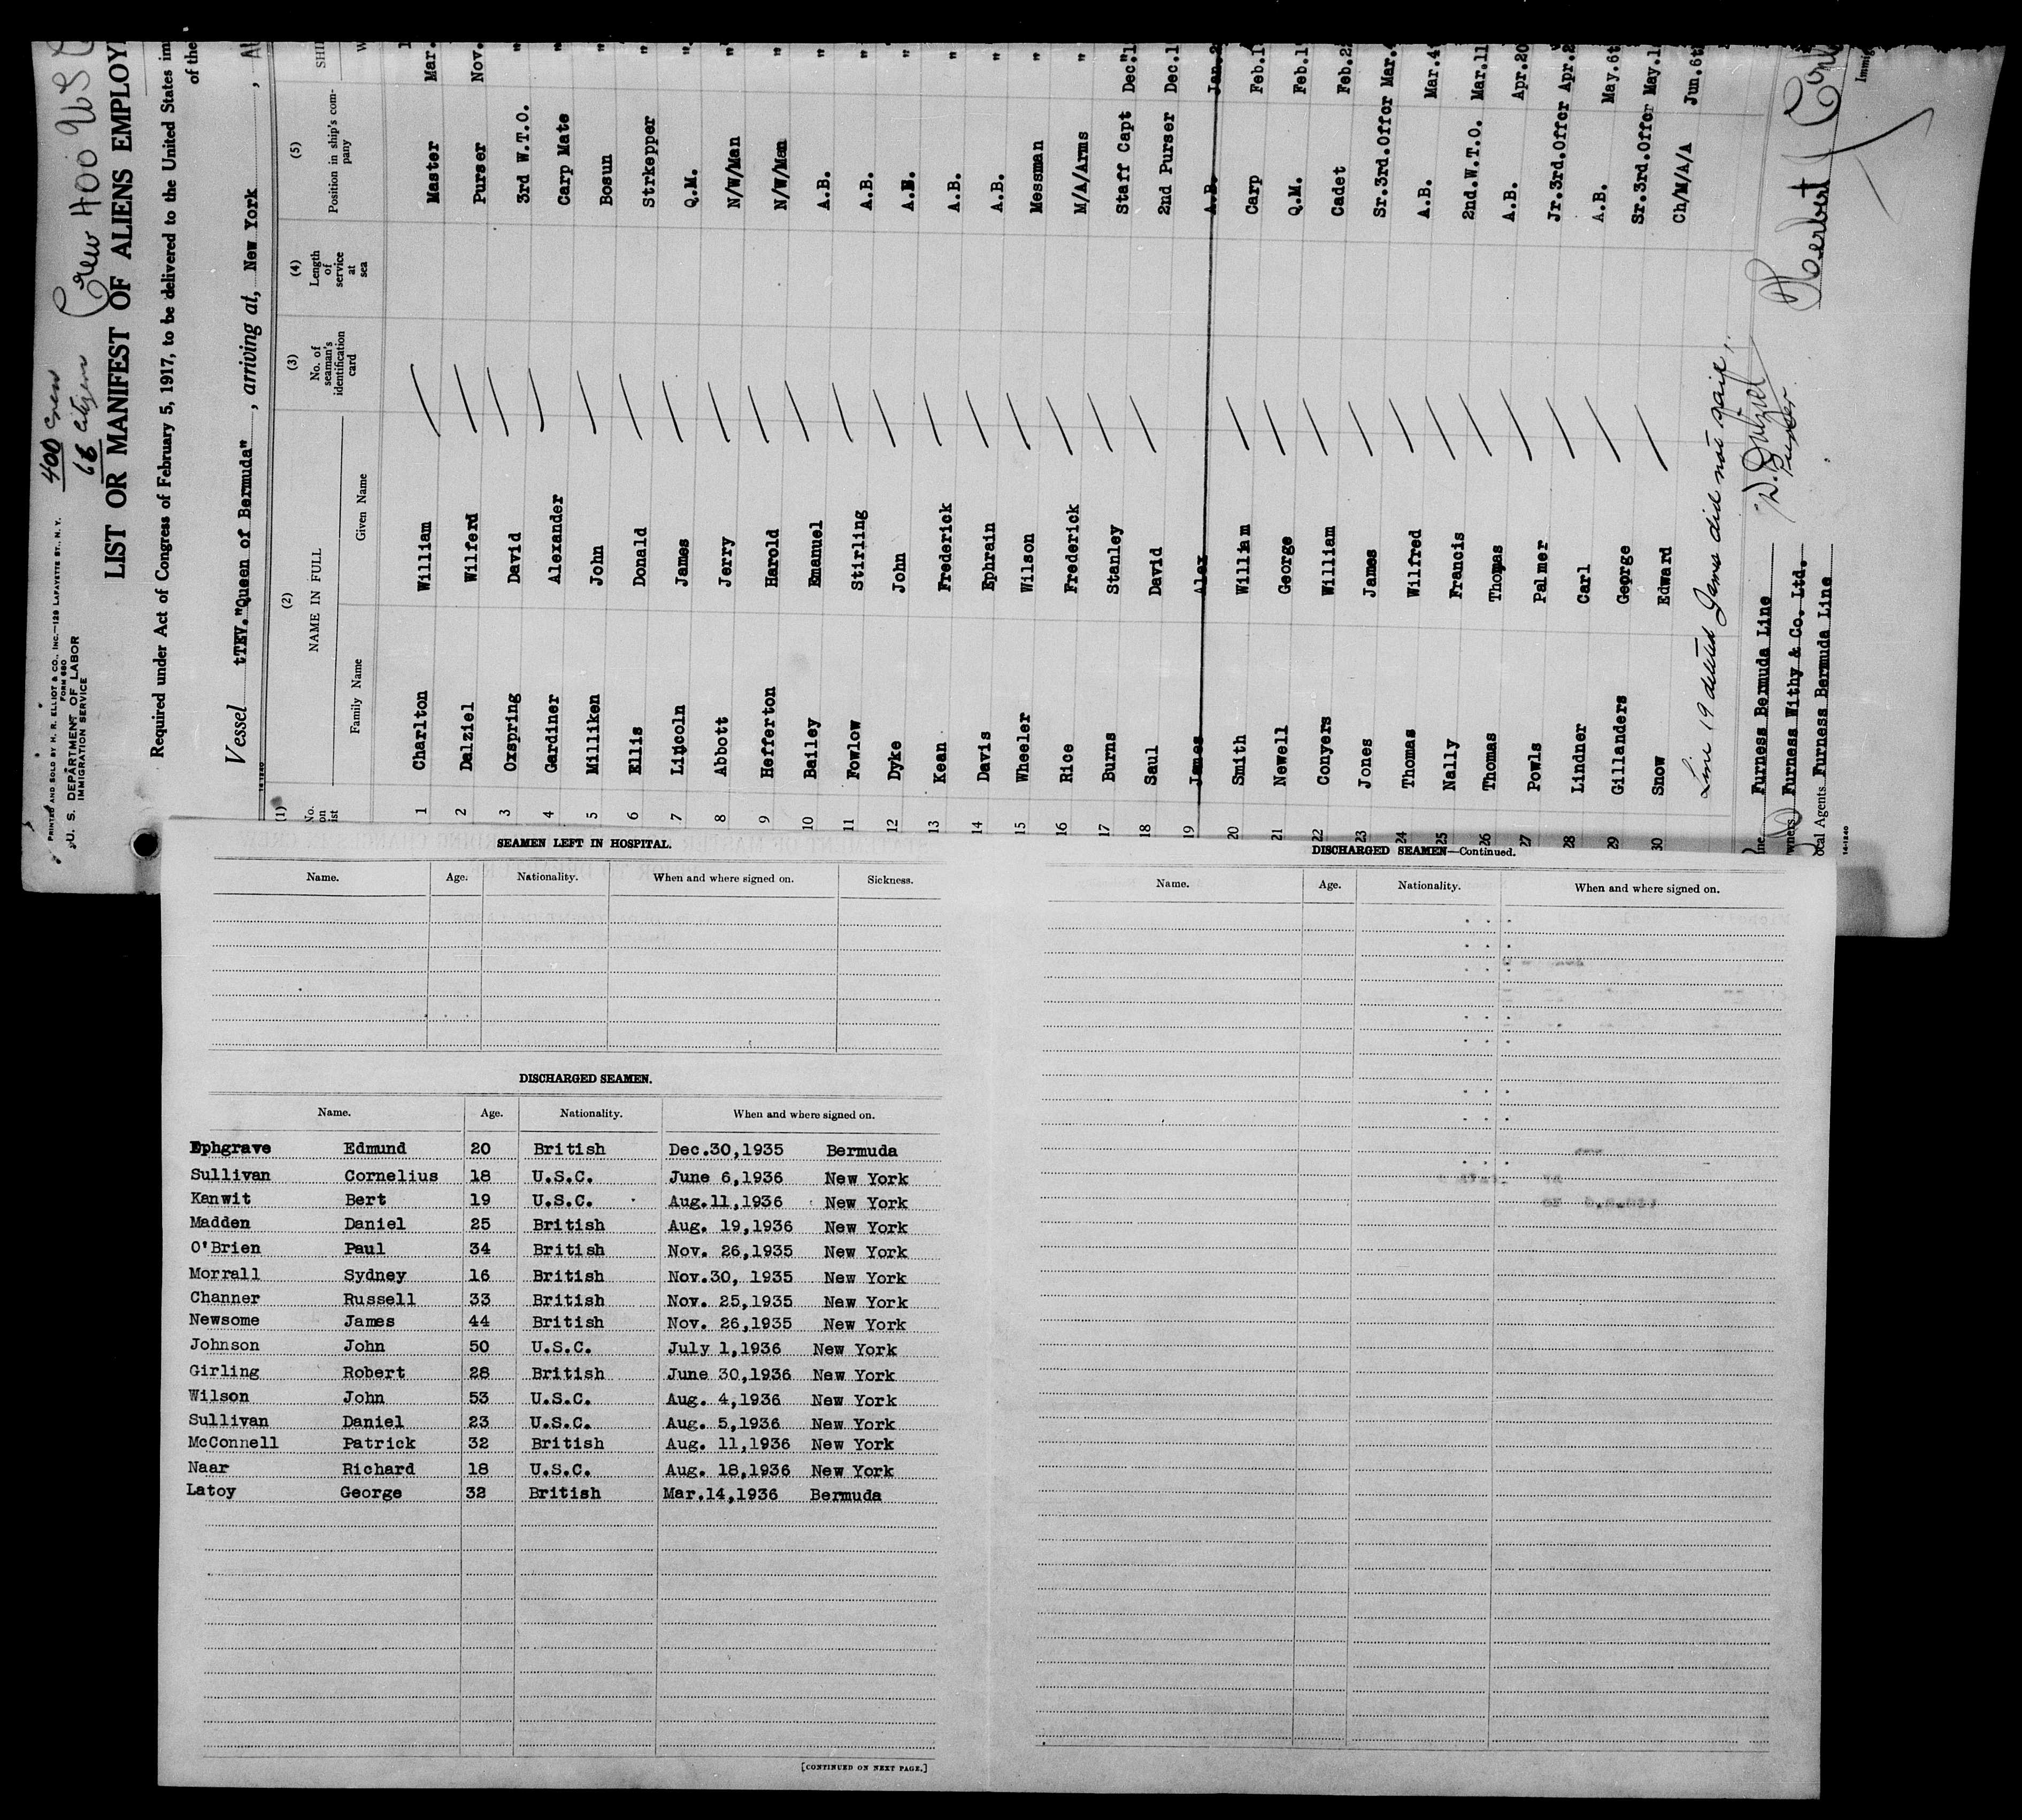 PRINTED AND SOLD BY H. R. ELLIOT & CO., INC.—129 LAFAYETTE ST., N. Y.
FORM 680
U. S. DEPARTMENT OF LABOR
IMMIGRATION SERVICE
400 Crew
68 Citizens
Crew 400 USC
LIST OR MANIFEST OF ALIENS EMPLOY
Required under Act of Congress of February 5, 1917, to be delivered to the United States im
of the
Vessel tTEV."Queen of Bermuda", arriving at, New York,
14-1240
(1) (2) (3) (4) (5)
No. on NAME IN FULL No. of seaman's identification card Length of service at sea Position in ship's company SHI
Family Name Given Name W
1 Charlton William Master Mar.
2 Dalziel Wilferd Purser Nov.
3 Oxspring David 3rd W.T.O. "
4 Gardiner Alexander Carp Mate "
5 Milliken John Bosun "
6 Ellis Donald Strkepper "
7 Lincoln James Q.M. "
8 Abbott Jerry N/W/Man "
9 Hefferton Harold N/W/Man "
10 Bailey Emanuel A.B. "
11 Fowlow Stirling A.B. "
12 Dyke John A.B. "
13 Kean Frederick A.B. "
14 Davis Ephrain A.B. "
15 Wheeler Wilson Messman "
16 Rice Frederick M/A/Arms "
17 Burns Stanley Staff Capt Dec.1
18 Saul David 2nd Purser Dec.1
19 James Alex A.B. Jan.2
20 Smith William Carp Feb.1
21 Newell George Q.M. Feb.1
22 Conyers William Cadet Feb.2
23 Jones James Sr.3rd.Offcr Mar.4
24 Thomas Wilfred A.B. Mar.4
25 Nally Francis 2nd.W.T.O. Mar.11
26 Thomas Thomas A.B. Apr.20
27 Powls Palmer Jr.3rd.Offcr Apr.2
28 Lindner Carl A.B. May.6t
29 Gillanders George Sr.3rd.Offcr May.1
30 Snow Edward Ch/M/A/A Jun.6t
Line 19 deleted James did not sail.
W. Dalziel
Purser
Furness Bermuda Line
Furness Withy & Co. Ltd.
ocal Agents Furness Bermuda Line
Herbert
Immig
14-1240
SEAMEN LEFT IN HOSPITAL.
Name. Age. Nationality. When and where signed on. Sickness.
DISCHARGED SEAMEN.
Name. Age. Nationality. When and where signed on.
Ephgrave Edmund 20 British Dec.30,1935 Bermuda
Sullivan Cornelius 18 U.S.C. June 6,1936 New York
Kanwit Bert 19 U.S.C. Aug.11,1936 New York
Madden Daniel 25 British Aug. 19,1936 New York
O'Brien Paul 34 British Nov. 26,1935 New York
Morrall Sydney 16 British Nov.30, 1935 New York
Channer Russell 33 British Nov. 25,1935 New York
Newsome James 44 British Nov. 26,1935 New York
Johnson John 50 U.S.C. July 1,1936 New York
Girling Robert 28 British June 30,1936 New York
Wilson John 53 U.S.C. Aug. 4,1936 New York
Sullivan Daniel 23 U.S.C. Aug. 5,1936 New York
McConnell Patrick 32 British Aug. 11,1936 New York
Naar Richard 18 U.S.C. Aug. 18,1936 New York
Latoy George 32 British Mar.14,1936 Bermuda
[CONTINUED ON NEXT PAGE.]
DISCHARGED SEAMEN—Continued.
Name. Age. Nationality. When and where signed on.